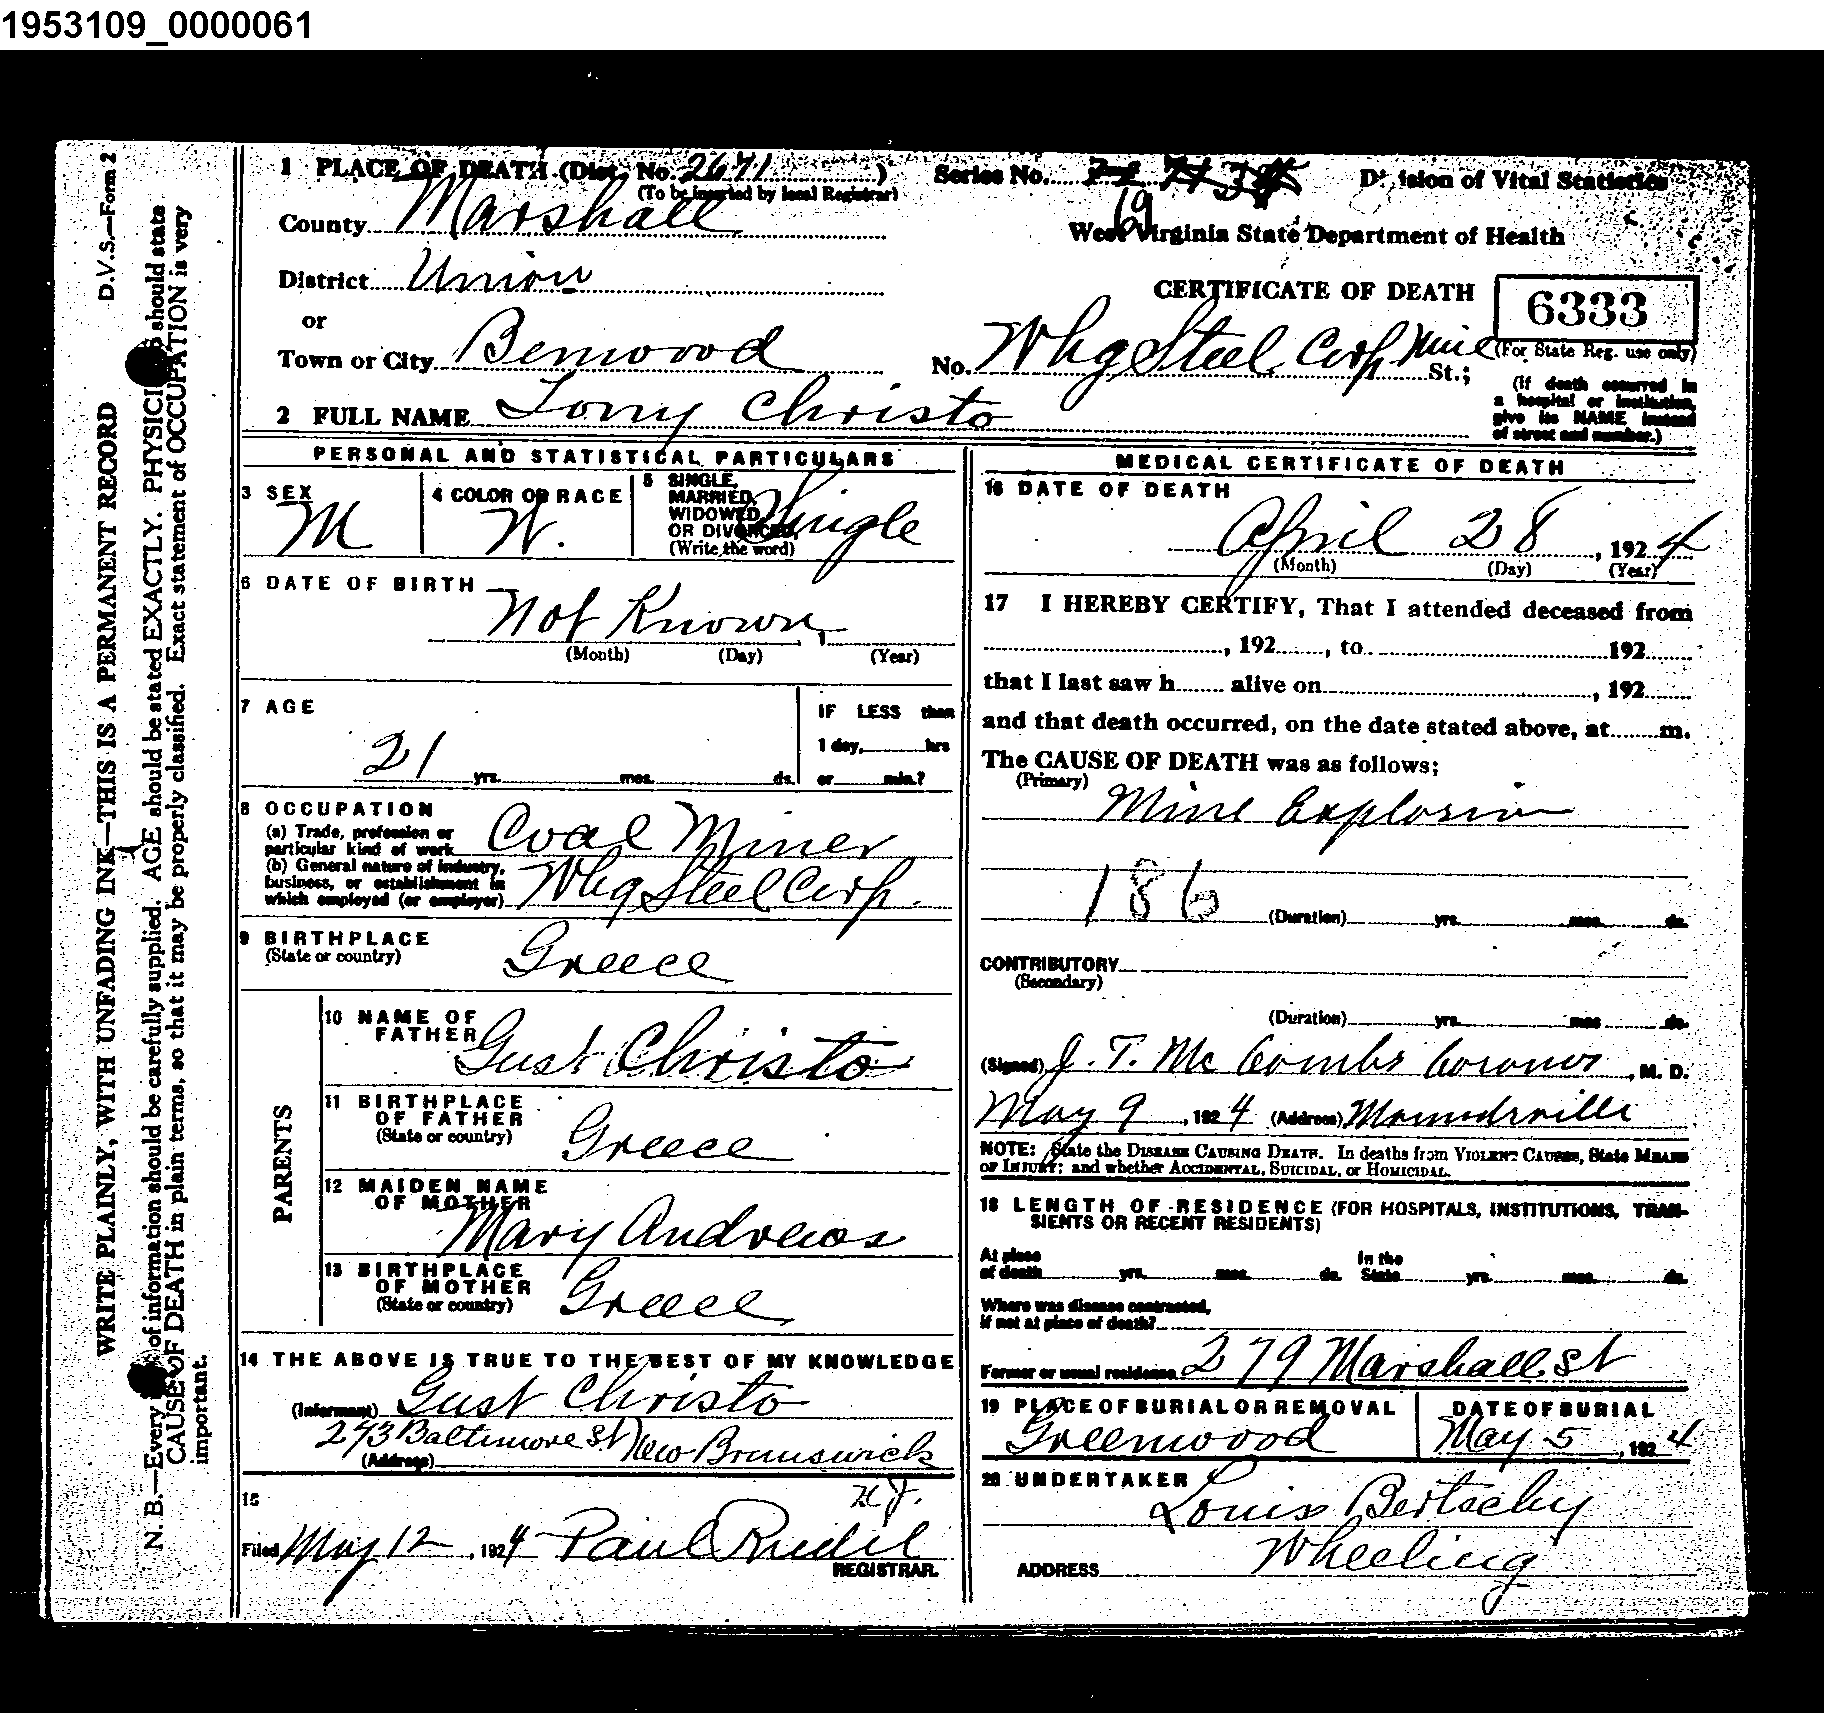 1953109_0000061
1 PLACE OF DEATH (Dist. No. 2671) Series No. 69 Division of Vital Statistics
(To be inserted by local Registrar)
County Marshall West Virginia State Department of Health
District Union CERTIFICATE OF DEATH 6333
or
Town or City Benwood No. Whg Steel Corp Mine St.; (For State Reg. use only)
(If death occurred in a hospital or institution, give its NAME instead of street and number.)
2 FULL NAME Tony Christo
PERSONAL AND STATISTICAL PARTICULARS
3 SEX M
4 COLOR OR RACE W.
5 SINGLE, MARRIED, WIDOWED, OR DIVORCED, (Write the word) Single
6 DATE OF BIRTH Not Known
(Month) (Day) (Year)
7 AGE 21 yrs. mos. ds.
IF LESS than 1 day, hrs or min.?
8 OCCUPATION
(a) Trade, profession or particular kind of work Coal Miner
(b) General nature of industry, business, or establishment in which employed (or employer) Whg Steel Corp.
9 BIRTHPLACE
(State or country) Greece
PARENTS
10 NAME OF FATHER Gust Christo
11 BIRTHPLACE OF FATHER
(State or country) Greece
12 MAIDEN NAME OF MOTHER Mary Andrews
13 BIRTHPLACE OF MOTHER
(State or country) Greece
14 THE ABOVE IS TRUE TO THE BEST OF MY KNOWLEDGE
(Informant) Gust Christo
(Address) 293 Baltimore St New Brunswick
N J.
15
Filed May 12, 1924 Paul Riedel
REGISTRAR.
MEDICAL CERTIFICATE OF DEATH
16 DATE OF DEATH
April 28, 1924
(Month) (Day) (Year)
17 I HEREBY CERTIFY, That I attended deceased from
, 192 , to 192
that I last saw h alive on , 192
and that death occurred, on the date stated above, at m.
The CAUSE OF DEATH was as follows;
(Primary) Mine Explosion
186 (Duration) yrs. mos. ds.
CONTRIBUTORY
(Secondary)
(Duration) yrs. mos ds.
(Signed) J. T. McCombs Coroner, M. D.
May 9, 1924 (Address) Moundsville
NOTE: State the DISEASE CAUSING DEATH. In deaths from VIOLENT CAUSES, State MEANS
OF INJURY; and whether ACCIDENTAL, SUICIDAL, or HOMICIDAL.
18 LENGTH OF RESIDENCE (FOR HOSPITALS, INSTITUTIONS, TRAN-
SIENTS OR RECENT RESIDENTS)
At place of death yrs. mos. ds. In the State yrs. mos. ds.
Where was disease contracted,
if not at place of death?
Former or usual residence 279 Marshall St
19 PLACE OF BURIAL OR REMOVAL Greenwood
DATE OF BURIAL May 5, 1924
20 UNDERTAKER Louis Bertschy
ADDRESS Wheeling
D.V.S.—Form 2
WRITE PLAINLY, WITH UNFADING INK—THIS IS A PERMANENT RECORD
N. B.—Every of information should be carefully supplied. AGE should be stated EXACTLY. PHYSICI should state
CAUSE OF DEATH in plain terms, so that it may be properly classified. Exact statement of OCCUPATION is very
important.